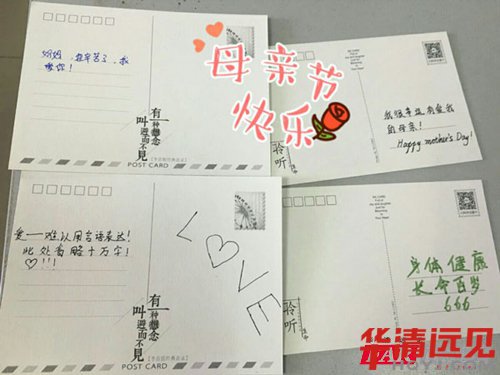 妈妈，您辛苦了，我
爱你！
有一种想念
叫避而不見
POST CARD
母亲节
快乐
我很幸运有爱我
的母亲！
Happy mother's Day!
聆听
爱——难以用言语表达！
此处省略十万字！
♡!!!
LOVE
有一种想念
叫避而不見
POST CARD
身体健康
长命百岁
666
聆听
华清远见